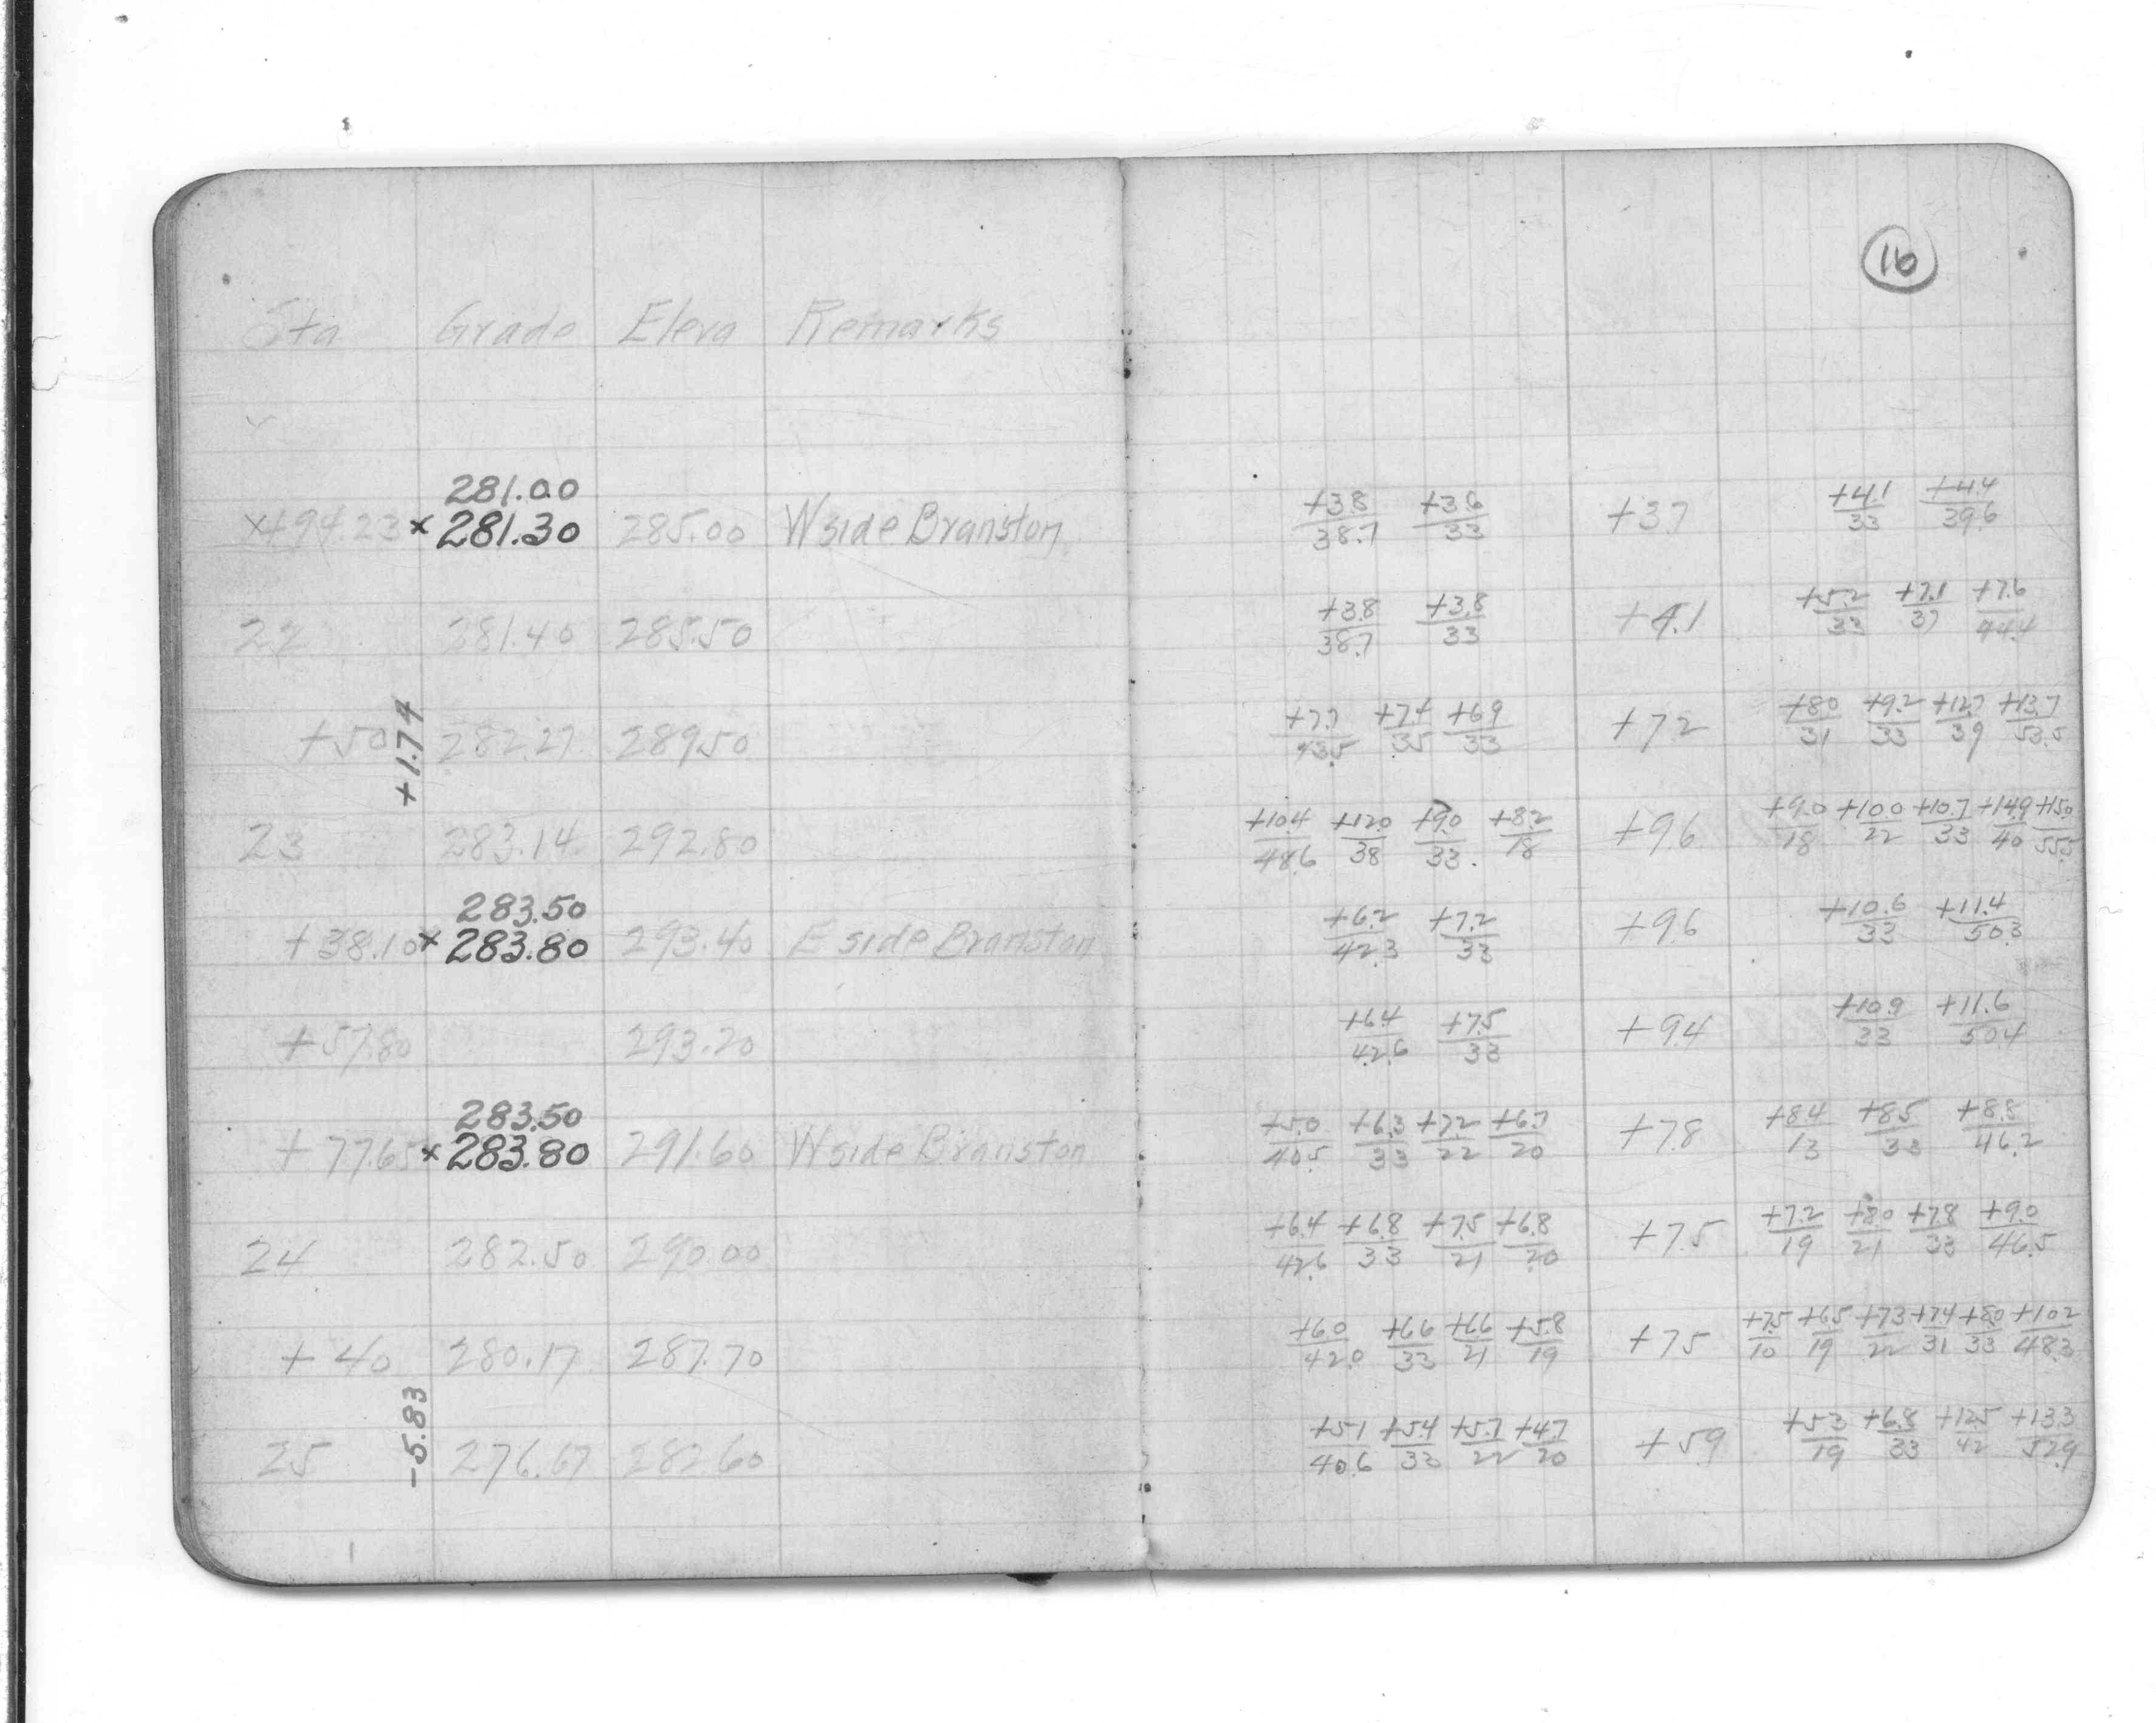 16
Sta Grade Eleva Remarks
281.00
x+94.23 x 281.30 285.00 W side Branston +3.8/38.7 +3.6/33 +3.7 +4.1/33 +4.4/39.6
22 281.40 285.50 +3.8/38.7 +3.8/33 +4.1 +5.2/33 +7.1/37 +7.6/44.4
+1.74
+50 282.27 289.50 +7.7/43.5 +7.4/35 +6.9/33 +7.2 +8.0/31 +9.2/33 +12.7/39 +13.7/53.5
23 283.14 292.80 +10.4/48.6 +12.0/38 +9.0/33 +8.2/18 +9.6 +9.0/18 +10.0/22 +10.7/33 +14.9/40 +15.0/55.5
283.50
+38.10 x 283.80 293.40 E side Branston +6.2/42.3 +7.2/33 +9.6 +10.6/33 +11.4/50.3
+57.80 293.20 +6.4/42.6 +7.5/33 +9.4 +10.9/33 +11.6/50.4
283.50
+77.65 x 283.80 291.60 W side Branston +5.0/40.5 +6.3/33 +7.2/22 +6.7/20 +7.8 +8.4/13 +8.5/33 +8.8/46.2
24 282.50 290.00 +6.4/42.6 +6.8/33 +7.5/21 +6.8/20 +7.5 +7.2/19 +8.0/21 +7.8/33 +9.0/46.5
+40 280.17 287.70 +6.0/42.0 +6.6/33 +6.6/21 +5.8/19 +7.5 +7.5/10 +6.5/19 +7.3/22 +7.4/31 +8.0/33 +10.2/48.3
-5.83
25 276.67 282.60 +5.1/40.6 +5.4/33 +5.7/22 +4.7/20 +5.9 +5.3/19 +6.8/33 +12.5/42 +13.3/52.9